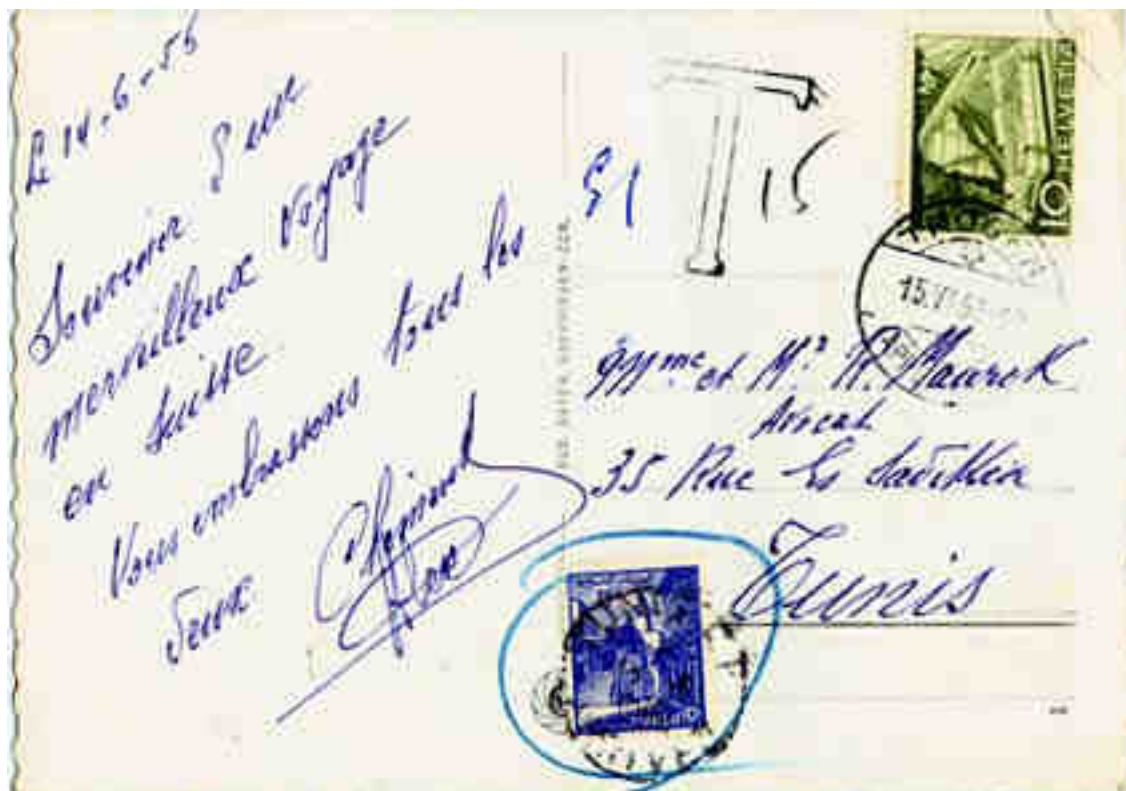 Le 14-6-56
Souvenir d'un
merveilleux voyage
en Suisse
Vous embrassons tous les
deux
T
15
HELVETIA
10
15.VI.5
Mme et Mr Maurek
Avocat
35 Rue Es
Tunis